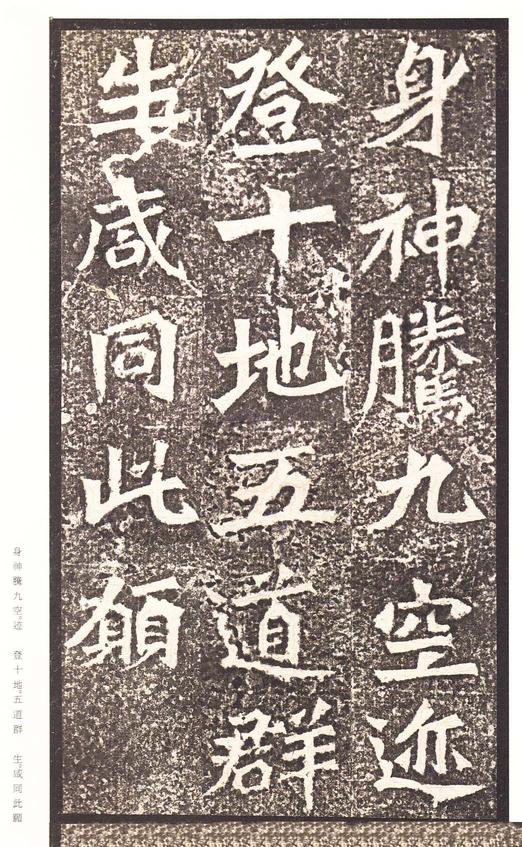 身神騰九空迹
登十地五道群
生咸同此願
身神騰九空。迹 登十地。五道群 生。咸同此願